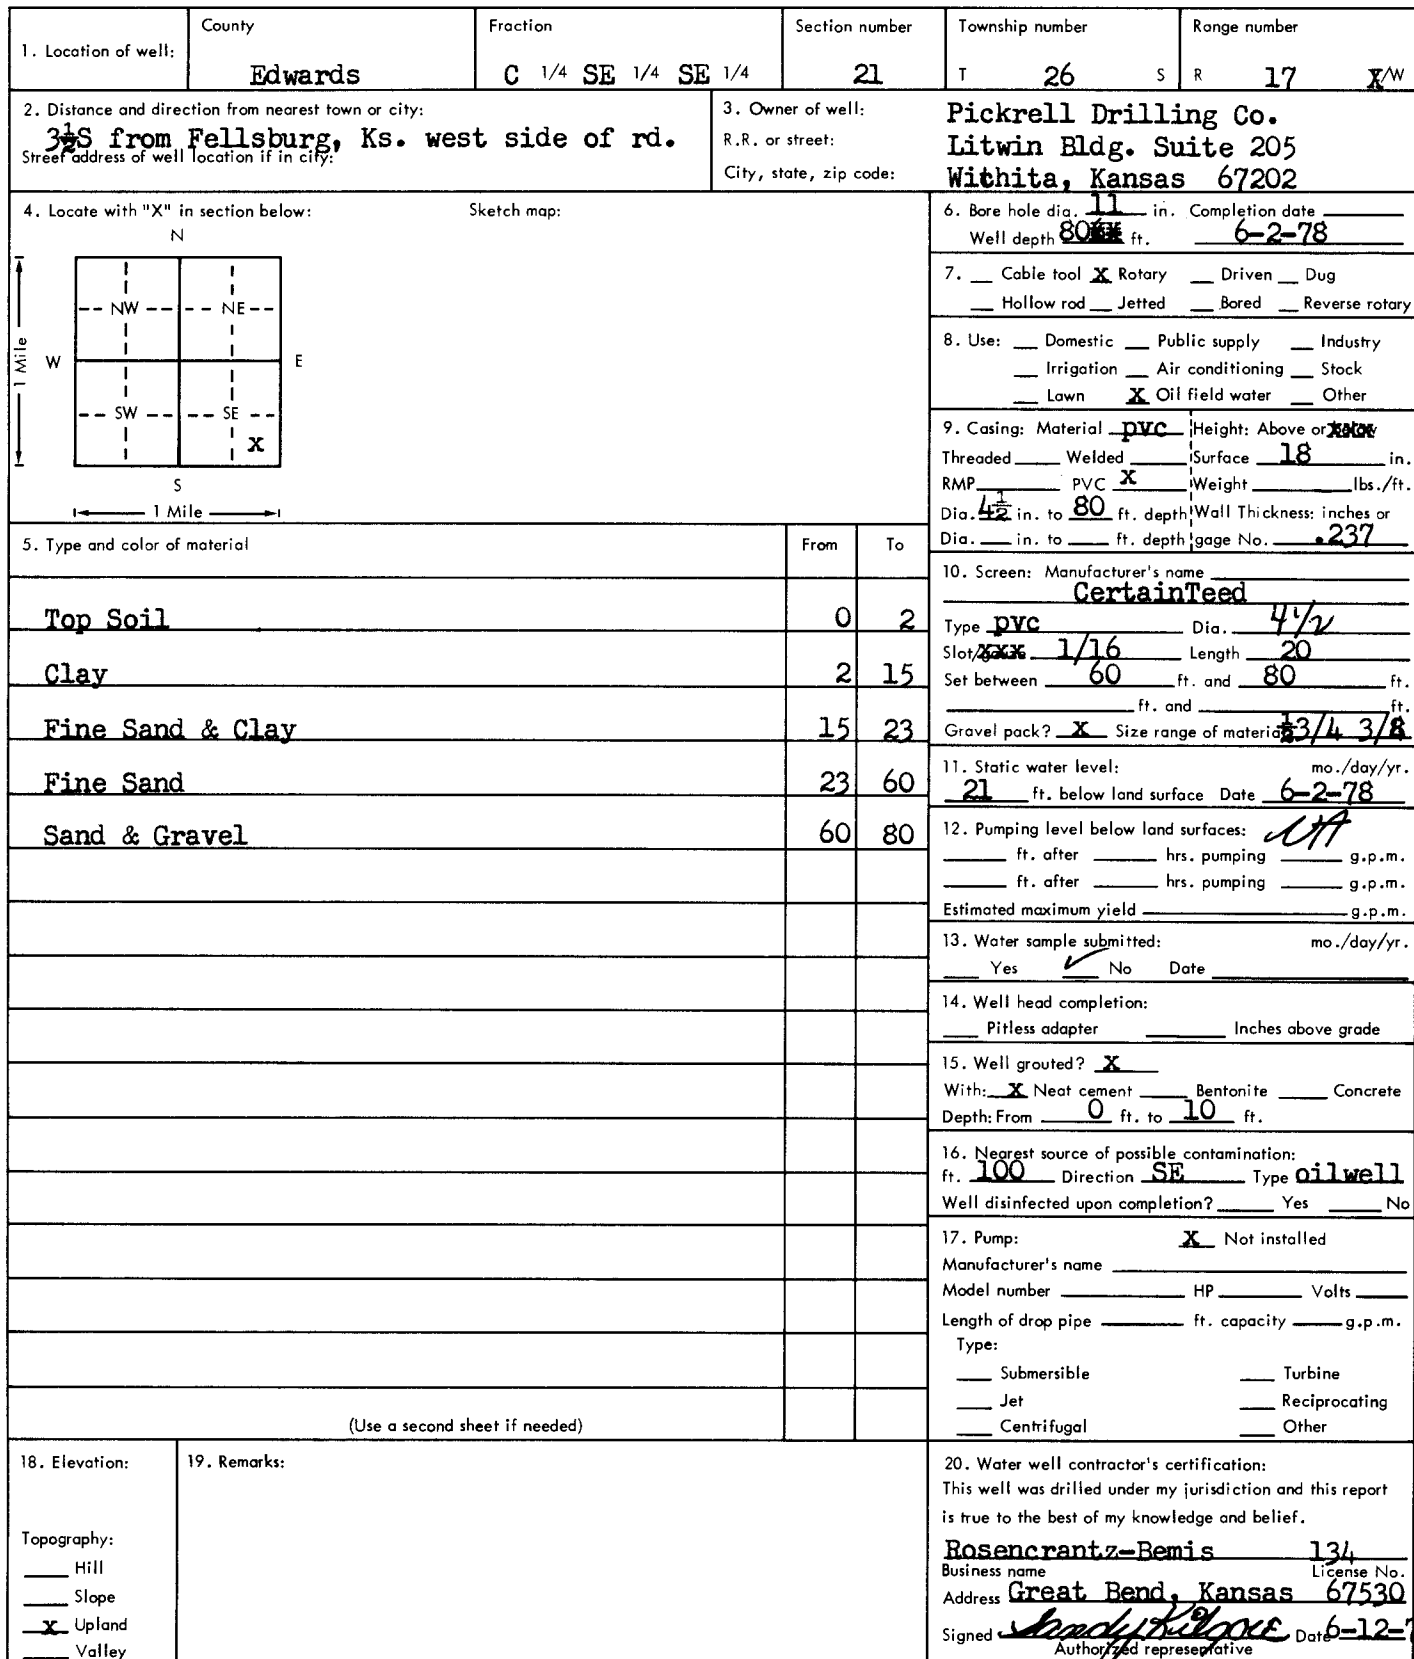 1. Location of well: County Fraction Section number Township number Range number
Edwards C 1/4 SE 1/4 SE 1/4 21 T 26 S R 17 X/W
2. Distance and direction from nearest town or city:
3½S from Fellsburg, Ks. west side of rd.
Street address of well location if in city:
3. Owner of well: Pickrell Drilling Co.
R.R. or street: Litwin Bldg. Suite 205
City, state, zip code: Withita, Kansas 67202
4. Locate with "X" in section below: Sketch map:
N
NW NE
W E
1 Mile
SW SE
X
S
1 Mile
5. Type and color of material From To
Top Soil 0 2
Clay 2 15
Fine Sand & Clay 15 23
Fine Sand 23 60
Sand & Gravel 60 80
(Use a second sheet if needed)
6. Bore hole dia. 11 in. Completion date
Well depth 80 ft. 6-2-78
7. Cable tool X Rotary Driven Dug
Hollow rod Jetted Bored Reverse rotary
8. Use: Domestic Public supply Industry
Irrigation Air conditioning Stock
Lawn X Oil field water Other
9. Casing: Material pvc Height: Above or
Threaded Welded Surface 18 in.
RMP PVC X Weight lbs./ft.
Dia. 4½ in. to 80 ft. depth Wall Thickness: inches or
Dia. in. to ft. depth gage No. .237
10. Screen: Manufacturer's name
CertainTeed
Type pvc Dia. 4 1/2
Slot/ 1/16 Length 20
Set between 60 ft. and 80 ft.
ft. and ft.
Gravel pack? X Size range of material 3/4 3/8
11. Static water level: mo./day/yr.
21 ft. below land surface Date 6-2-78
12. Pumping level below land surfaces: NA
ft. after hrs. pumping g.p.m.
ft. after hrs. pumping g.p.m.
Estimated maximum yield g.p.m.
13. Water sample submitted: mo./day/yr.
Yes ✓ No Date
14. Well head completion:
Pitless adapter Inches above grade
15. Well grouted? X
With: X Neat cement Bentonite Concrete
Depth: From 0 ft. to 10 ft.
16. Nearest source of possible contamination:
ft. 100 Direction SE Type oilwell
Well disinfected upon completion? Yes No
17. Pump: X Not installed
Manufacturer's name
Model number HP Volts
Length of drop pipe ft. capacity g.p.m.
Type:
Submersible Turbine
Jet Reciprocating
Centrifugal Other
18. Elevation:
Topography:
Hill
Slope
X Upland
Valley
19. Remarks:
20. Water well contractor's certification:
This well was drilled under my jurisdiction and this report
is true to the best of my knowledge and belief.
Rosencrantz-Bemis 134
Business name License No.
Address Great Bend, Kansas 67530
Signed Sandy Kilgore Date 6-12-7
Authorized representative